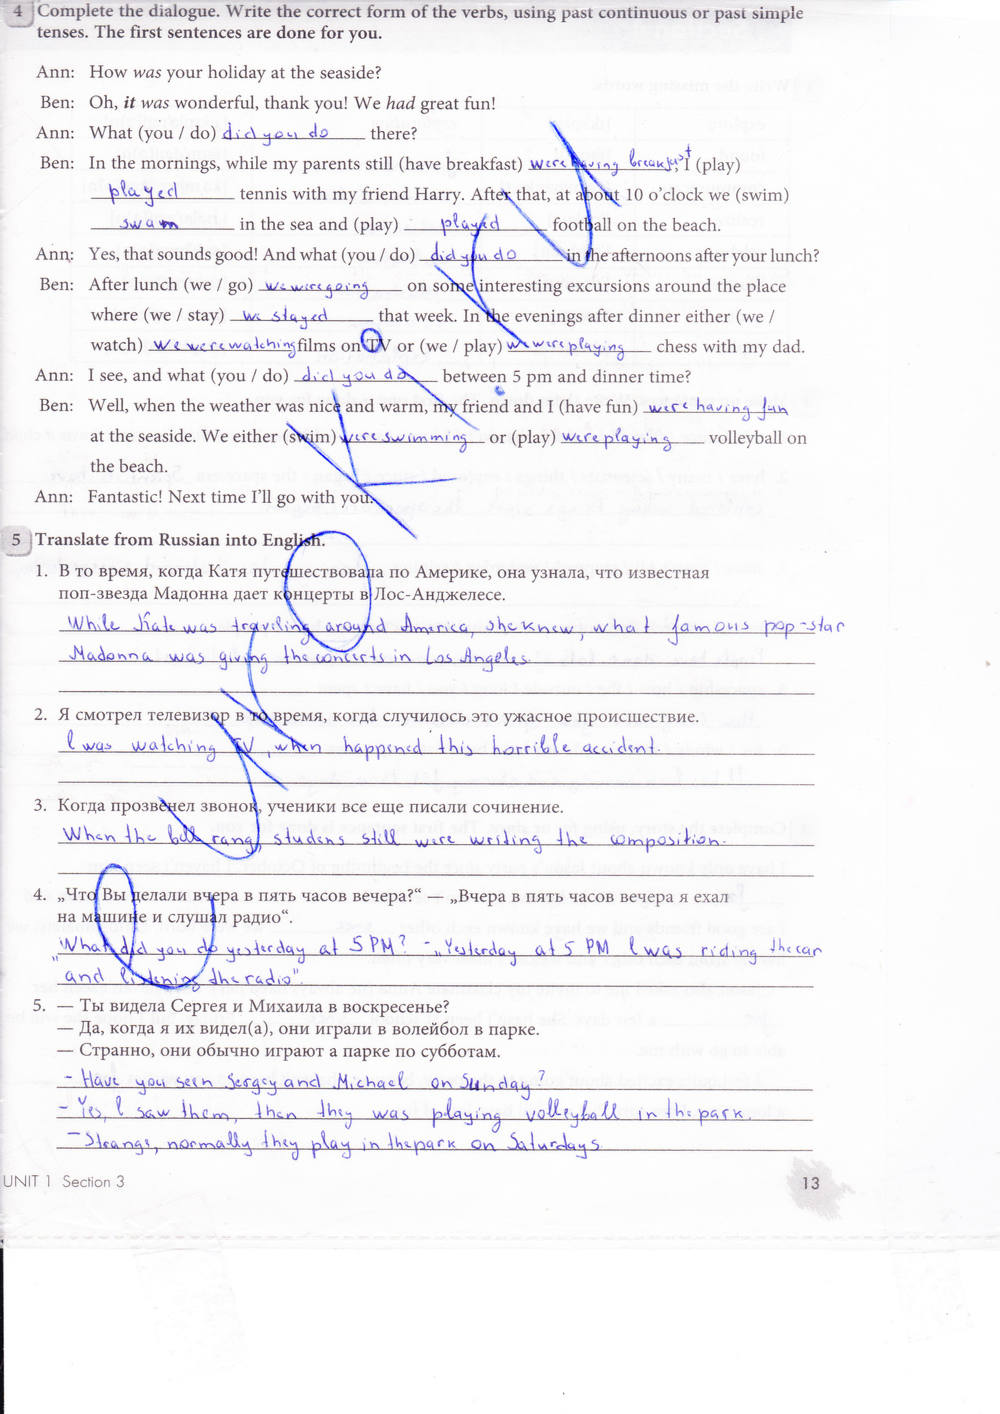 4 Complete the dialogue. Write the correct form of the verbs, using past continuous or past simple
tenses. The first sentences are done for you.
Ann: How was your holiday at the seaside?
Ben: Oh, it was wonderful, thank you! We had great fun!
Ann: What (you / do) did you do there?
Ben: In the mornings, while my parents still (have breakfast) were having breakfast, I (play)
played tennis with my friend Harry. After that, at about 10 o'clock we (swim)
swam in the sea and (play) played football on the beach.
Ann: Yes, that sounds good! And what (you / do) did you do in the afternoons after your lunch?
Ben: After lunch (we / go) we were going on some interesting excursions around the place
where (we / stay) we stayed that week. In the evenings after dinner either (we /
watch) we were watching films on TV or (we / play) we were playing chess with my dad.
Ann: I see, and what (you / do) did you do between 5 pm and dinner time?
Ben: Well, when the weather was nice and warm, my friend and I (have fun) were having fun
at the seaside. We either (swim) were swimming or (play) were playing volleyball on
the beach.
Ann: Fantastic! Next time I'll go with you.
5 Translate from Russian into English.
1. В то время, когда Катя путешествовала по Америке, она узнала, что известная
поп-звезда Мадонна дает концерты в Лос-Анджелесе.
While Kate was traveling around America, she knew, what famous pop-star
Madonna was giving the concerts in Los Angeles.
2. Я смотрел телевизор в то время, когда случилось это ужасное происшествие.
I was watching TV, when happened this horrible accident.
3. Когда прозвенел звонок, ученики все еще писали сочинение.
When the bell rang, studens still were writing the composition.
4. „Что Вы делали вчера в пять часов вечера?“ — „Вчера в пять часов вечера я ехал
на машине и слушал радио“.
„What did you do yesterday at 5 PM? - „Yesterday at 5 PM I was riding the car
and listening the radio".
5. — Ты видела Сергея и Михаила в воскресенье?
— Да, когда я их видел(а), они играли в волейбол в парке.
— Странно, они обычно играют а парке по субботам.
- Have you seen Sergey and Michael on Sunday?
- Yes, I saw them, then they was playing volleyball in the park.
- Strange, normally they play in the park on Saturdays
UNIT 1 Section 3
13